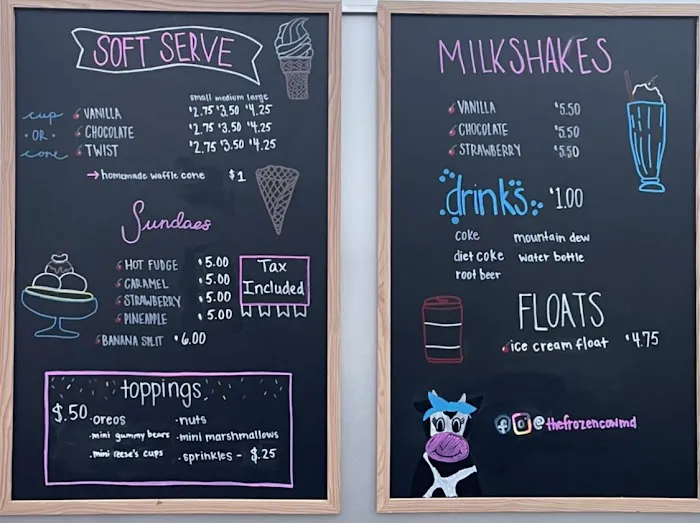 SOFT SERVE
small medium large
cup VANILLA $2.75 $3.50 $4.25
·OR· CHOCOLATE $2.75 $3.50 $4.25
cone TWIST $2.75 $3.50 $4.25
→ homemade waffle cone $1
Sundaes
HOT FUDGE $5.00
CARAMEL $5.00
STRAWBERRY $5.00
PINEAPPLE $5.00
BANANA SPLIT $6.00
Tax
Included
toppings
$.50 ·oreos ·nuts
·mini gummy bears ·mini marshmallows
·mini reese's cups ·sprinkles - $.25
MILKSHAKES
VANILLA $5.50
CHOCOLATE $5.50
STRAWBERRY $5.50
drinks: $1.00
coke mountain dew
diet coke water bottle
root beer
FLOATS
ice cream float $4.75
@thefrozencowmd